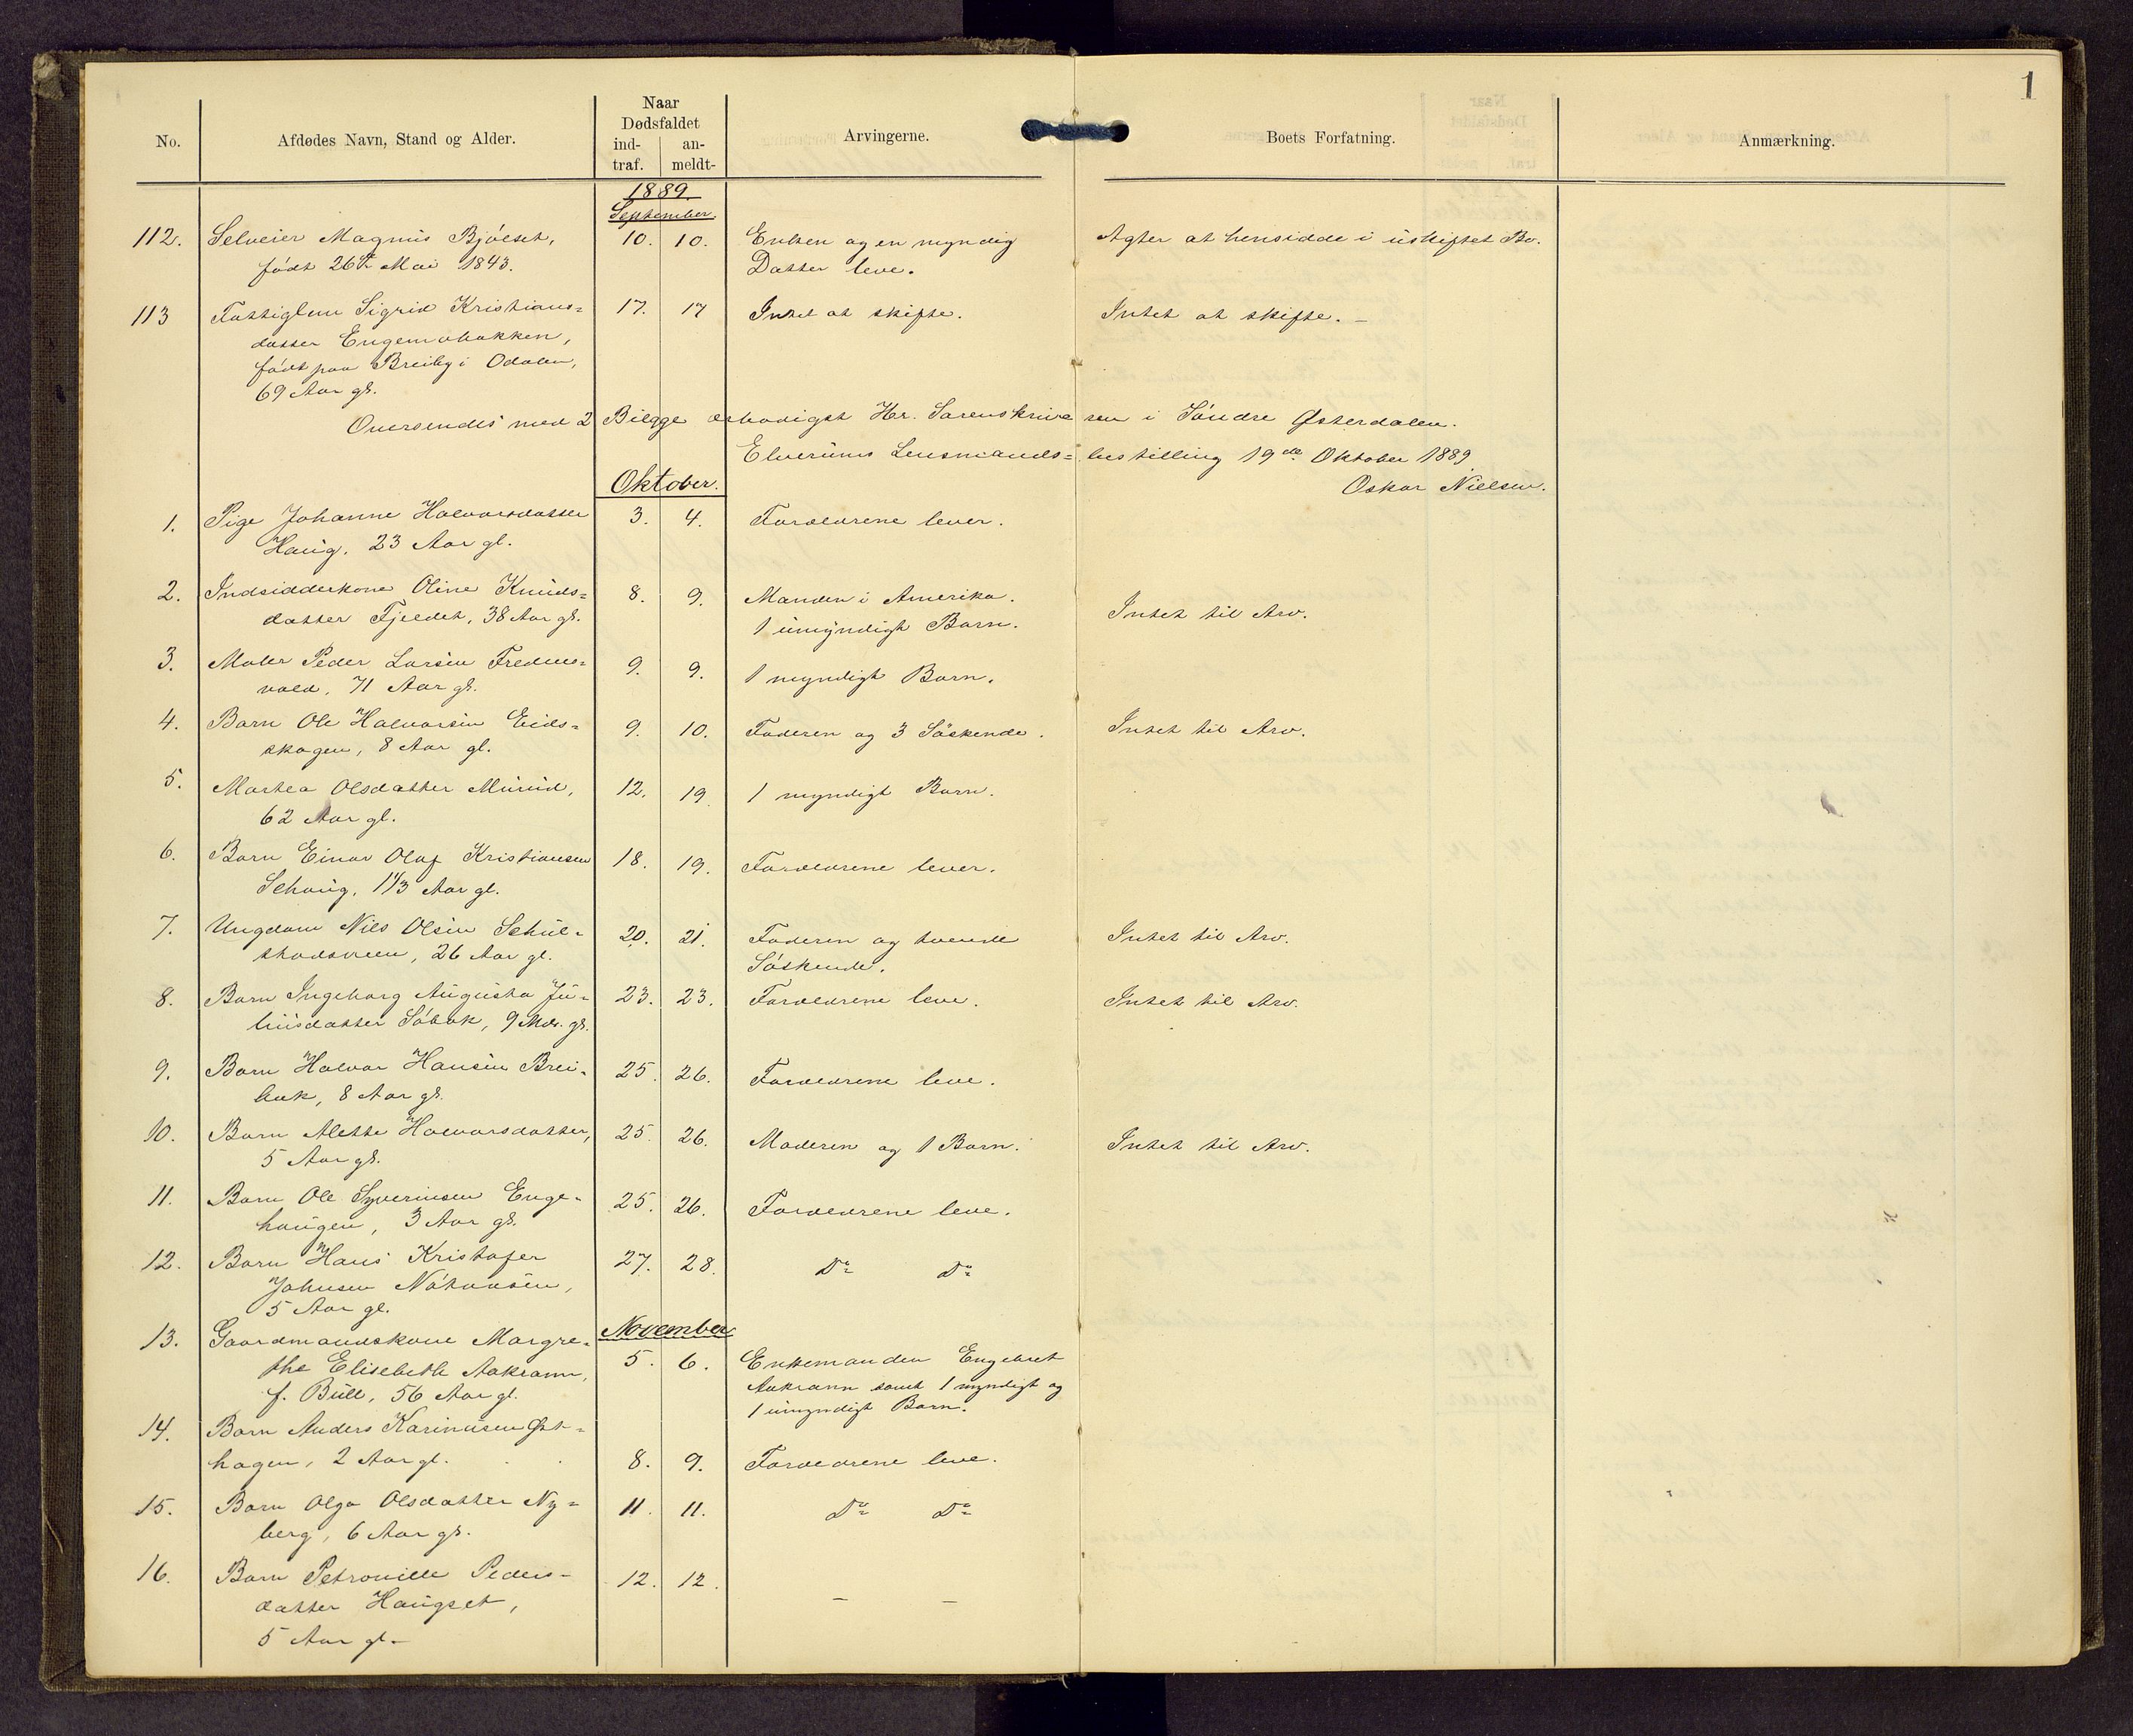 1
No.
Afdødes Navn, Stand og Alder.
Naar
Dødsfaldet
ind-
traf.
an-
meldt-
Arvingerne.
Boets Forfatning.
Anmærkning.
1889.
September.
112. Selveier Magnus Bjölset, 10. 10. Enken og en myndig Agter at hensidde i uskiftet Bo.
født 26de Mai 1843. Datter leve.
113 Fattiglem Sigrid Kristians= 17. 17 Intet at skifte. Intet at skifte. –
datter Engemobakken,
født paa Breiby i Odalen,
69 Aar gl.
Oversendes med 2 Bilage ærbødigst Hr. Sorenskriveren i Söndre Østerdalen.
Elverums Lensmands=bestilling 19de Oktober 1889.
Oskar Nielsen.
Oktober.
1. Pige Johanne Halvorsdatter 3. 4. Forældrene lever.
Haug. 23 Aar gl.
2. Indsidderkone Oline Knuds= 8. 9. Manden i Amerika. Intet til Arv.
datter Fjeldet, 38 Aar gl. 1 umyndigt Barn.
3. Maler Peder Larsen Fredens= 9. 9. 1 myndigt Barn.
vold, 71 Aar gl.
4. Barn Ole Halvorsen Eids= 9. 10. Faderen og 3 Söskende. Intet til Arv.
skogen, 8 Aar gl.
5. Martea Olsdatter Murud, 12. 19 1 myndigt Barn.
62 Aar gl.
6. Barn Einar Olaf Kristiansen 18. 19. Forældrene lever.
Sehaug, 1 1/3 Aar gl.
7. Ungdom Nils Olsen 20. 21. Faderen og tvende Intet til Arv.
26 Aar gl. Söskende.
8. Barn Ingeborg Augusta Ju= 23. 23. Forældrene leve. Intet til Arv.
liusdatter Söbak, 9 Mdr. gl.
9. Barn Halvor Hansen Brei= 25. 26. Forældrene leve.
bak, 8 Aar gl.
10. Barn Alette Halvorsdatter, 25. 26. Moderen og 1 Barn. Intet til Arv.
5 Aar gl.
11. Barn Ole Syverinsen Enge= 25. 26. Forældrene leve.
haugen, 3 Aar gl.
12. Barn Hans Kristofer 27. 28. Do Do
Johnsen
5 Aar gl.
November
13. Gaardmandskone Margre= 5. 6. Enkemanden Engebret
the Elisebeth Aakrann, Aakrann samt 1 myndigt og
f. Bull, 56 Aar gl. 1 umyndigt Barn.
14. Barn Anders Karinusen Øst=
hagen, 2 Aar gl. 8. 9. Forældrene leve.
15. Barn Olga Olsdatter Ny= 11. 11. Do Do
berg, 6 Aar gl.
16. Barn Petronille Peders= 12. 12. – –
datter Haugset,
5 Aar gl. –